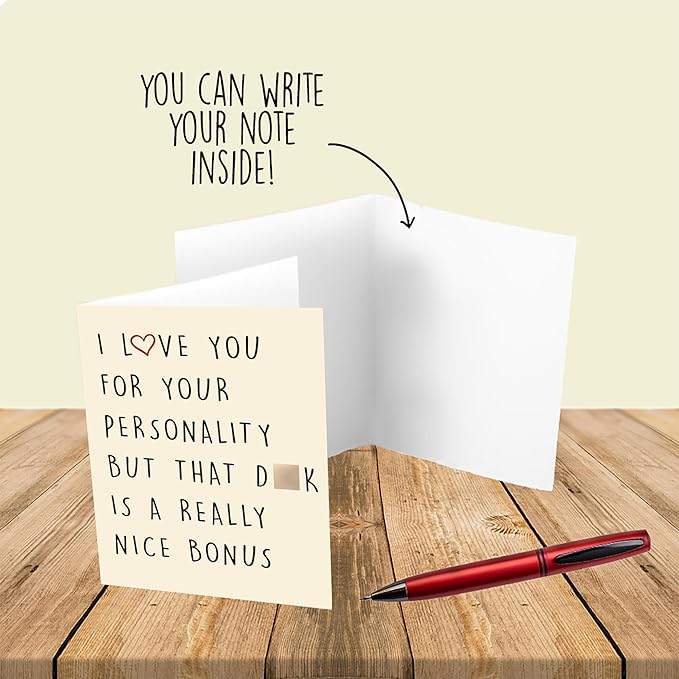 YOU CAN WRITE
YOUR NOTE
INSIDE!
I L♡VE YOU
FOR YOUR
PERSONALITY
BUT THAT D K
IS A REALLY
NICE BONUS